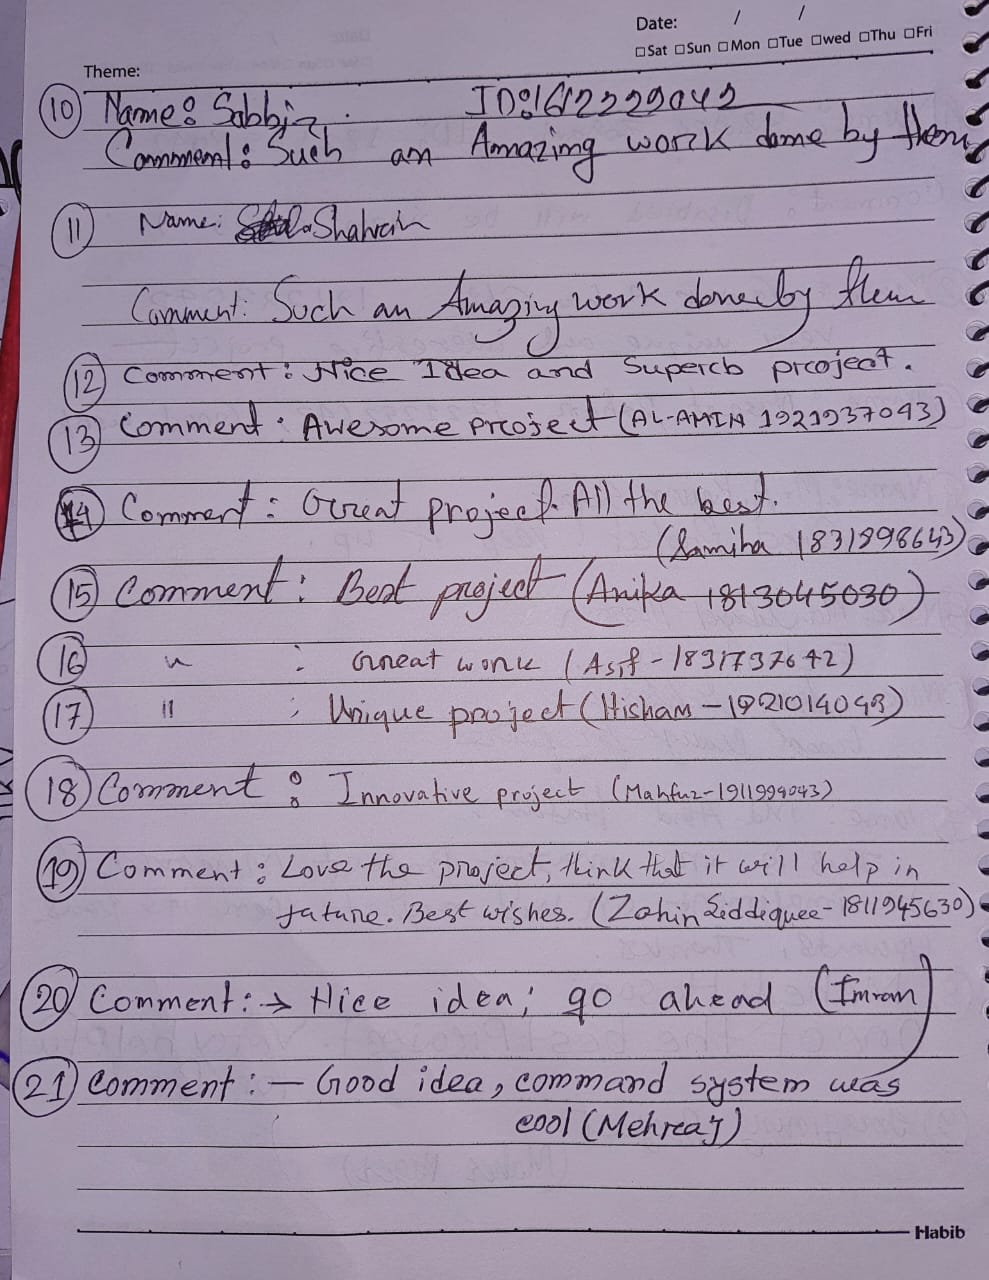 Date: / /
Sat Sun Mon Tue wed Thu Fri
Theme:
10 Name: Sabbir ID:1612229042
Comment: Such an Amazing work done by them
11 Name: Shahrain
Comment: Such an Amazing work done by them
12 Comment: Nice Idea and Superb project.
13 Comment: Awesome project (AL-AMIN 1921937043)
14 Comment: Great project. All the best.
(Samiha 1831898643)
15 Comment: Best project (Anika 1813045030)
16 " : Great work (Asif - 1831737642)
17 " : Unique project (Hisham - 1921014043)
18 Comment: Innovative project (Mahfuz-1911999043)
19 Comment: Love the project, think that it will help in
future. Best wishes. (Zahin Siddiquee - 1811945630)
20 Comment: → Nice idea; go ahead (Imran)
21 Comment: — Good idea, command system was
cool (Mehreaj)
Habib